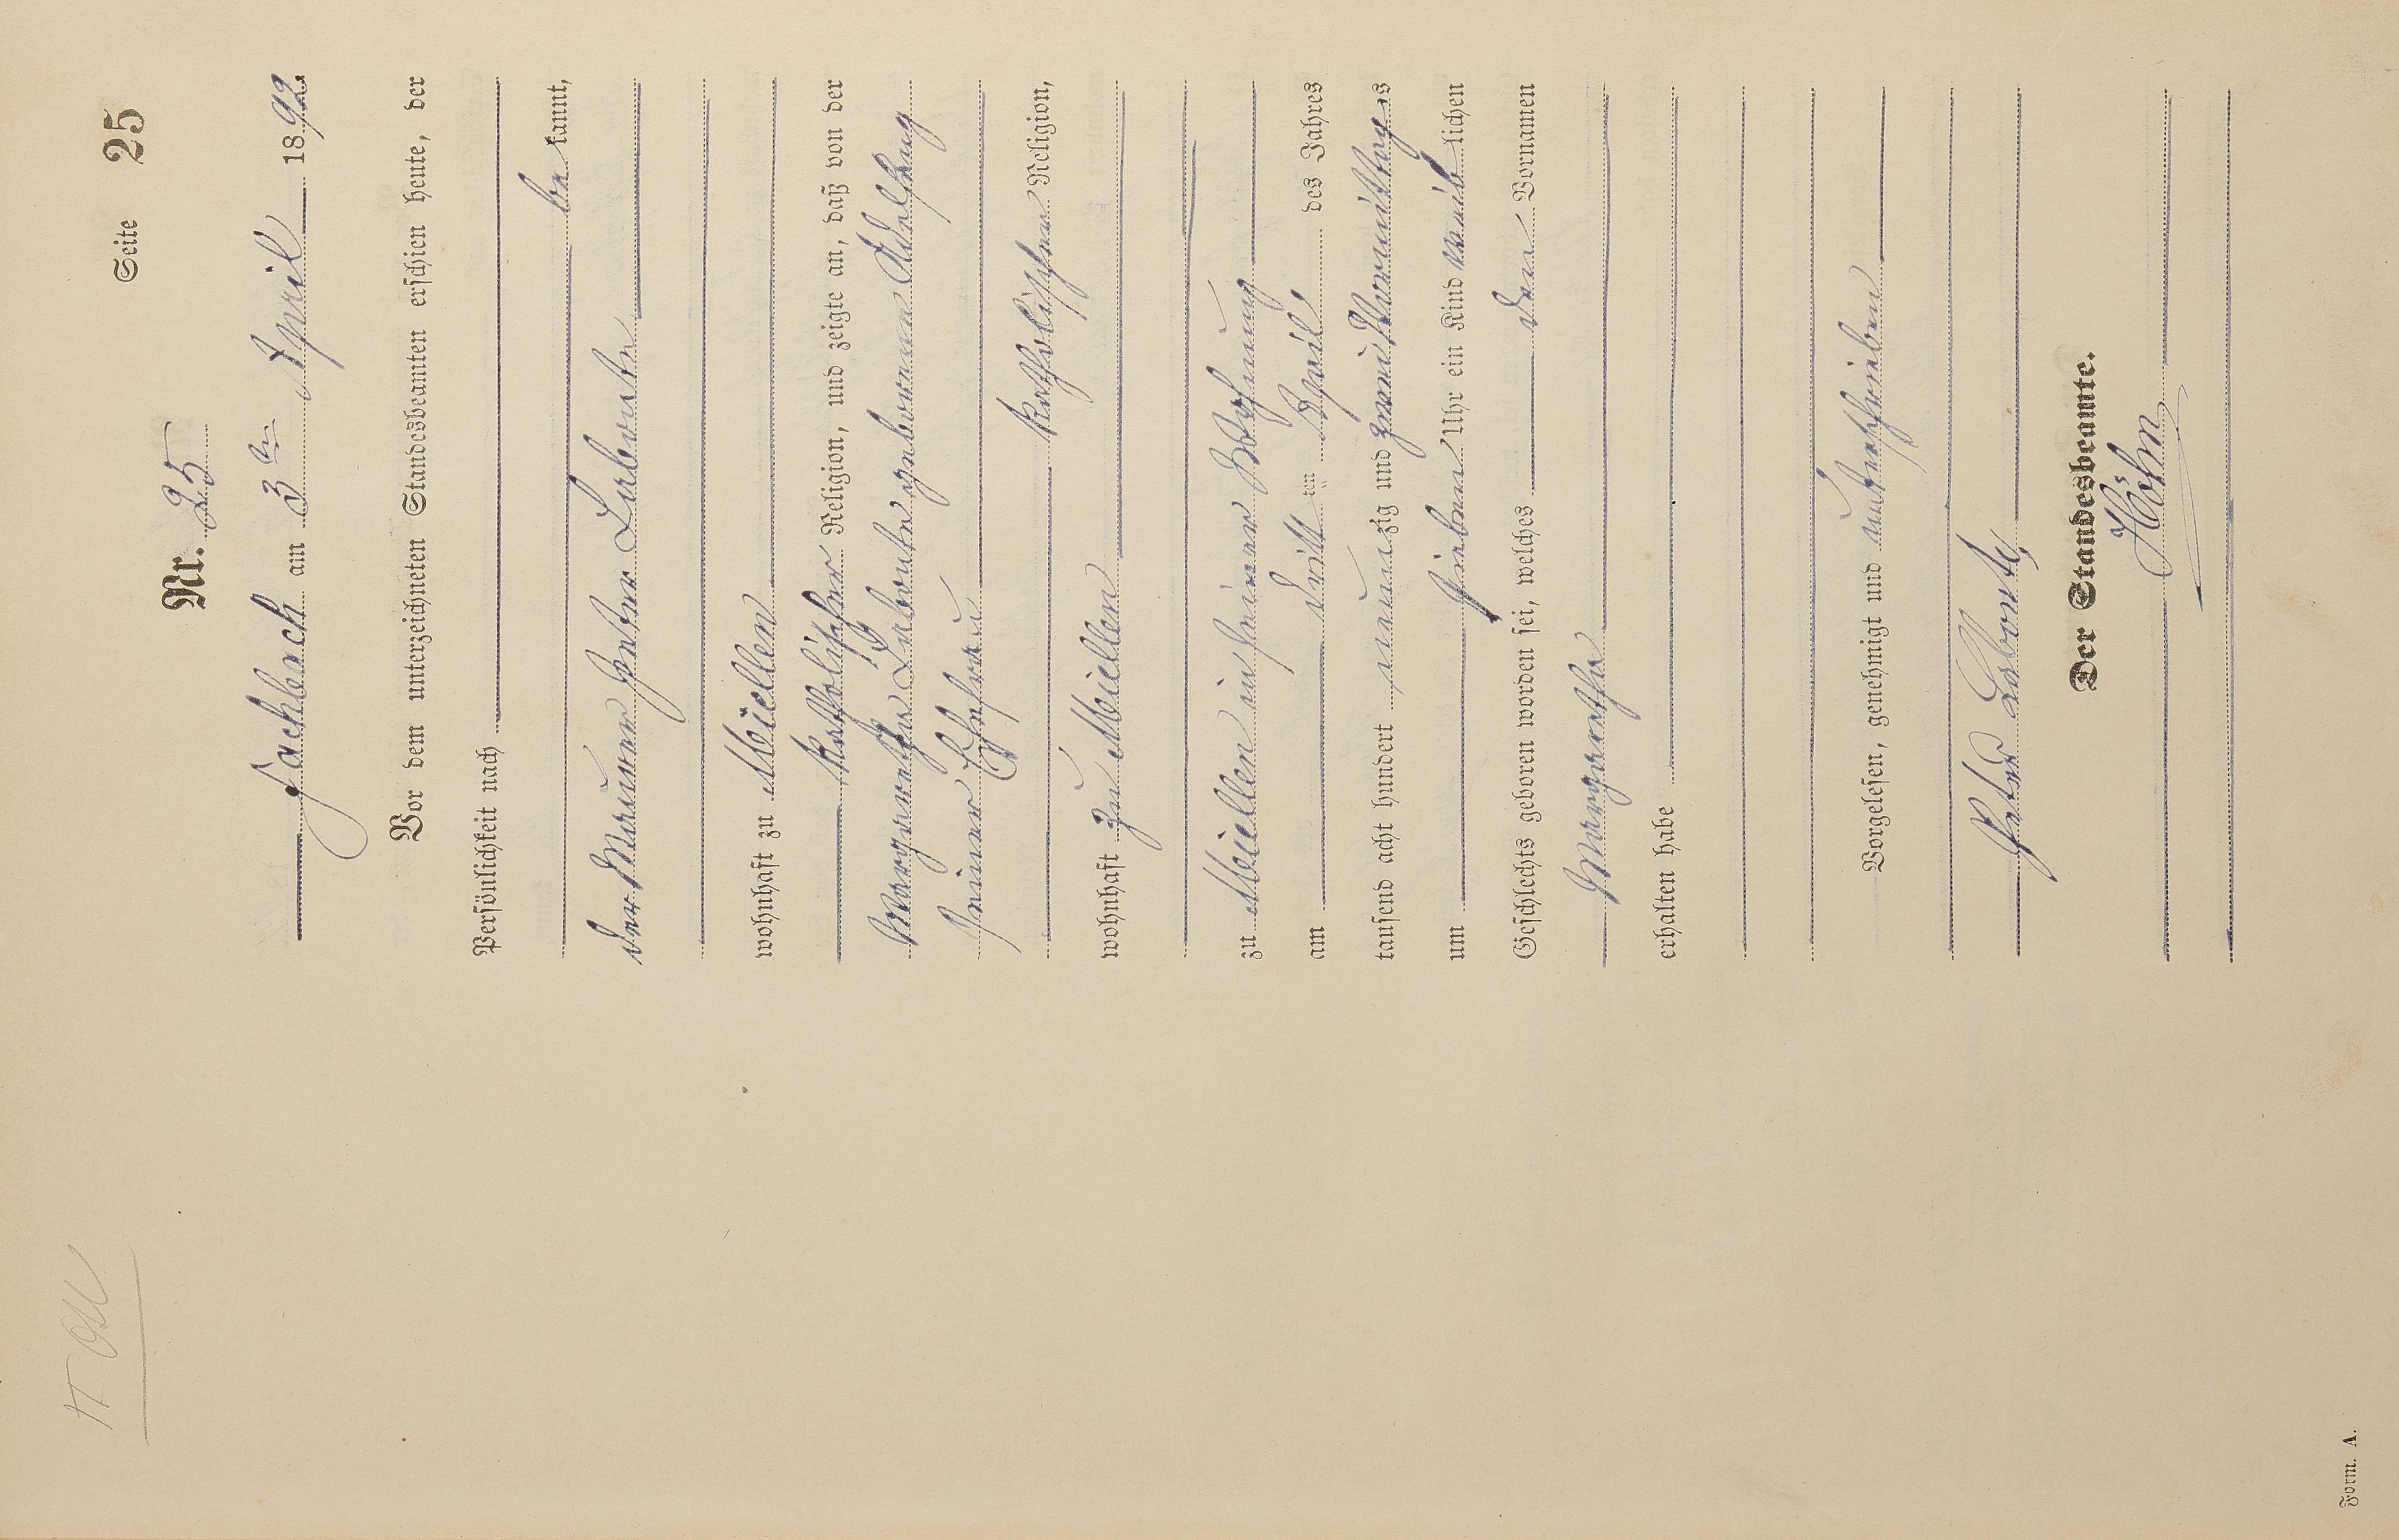 Seite 25
Nr. 25
Fachbach am 3ten April 1892.
Vor dem unterzeichneten Standesbeamten erschien heute, der
Persönlichkeit nach
bekannt,
der Maurer Peter Labonte
wohnhaft zu Miellen
katholischer Religion, und zeigte an, daß von der
Margaretha Labonte geborenen Adelfang
seiner Ehefrau
katholischer Religion,
wohnhaft zu Miellen
zu Miellen in seiner Wohnung
am dritten April, des Jahres
tausend acht hundert neunzig und zwei Vormittags
um sieben Uhr ein Kind weiblichen
Geschlechts geboren worden sei, welches den Vornamen
Margaretha
erhalten habe
Vorgelesen, genehmigt und unterschrieben
Peter Labonte,
Der Standesbeamte.
Höhn
Form. A.